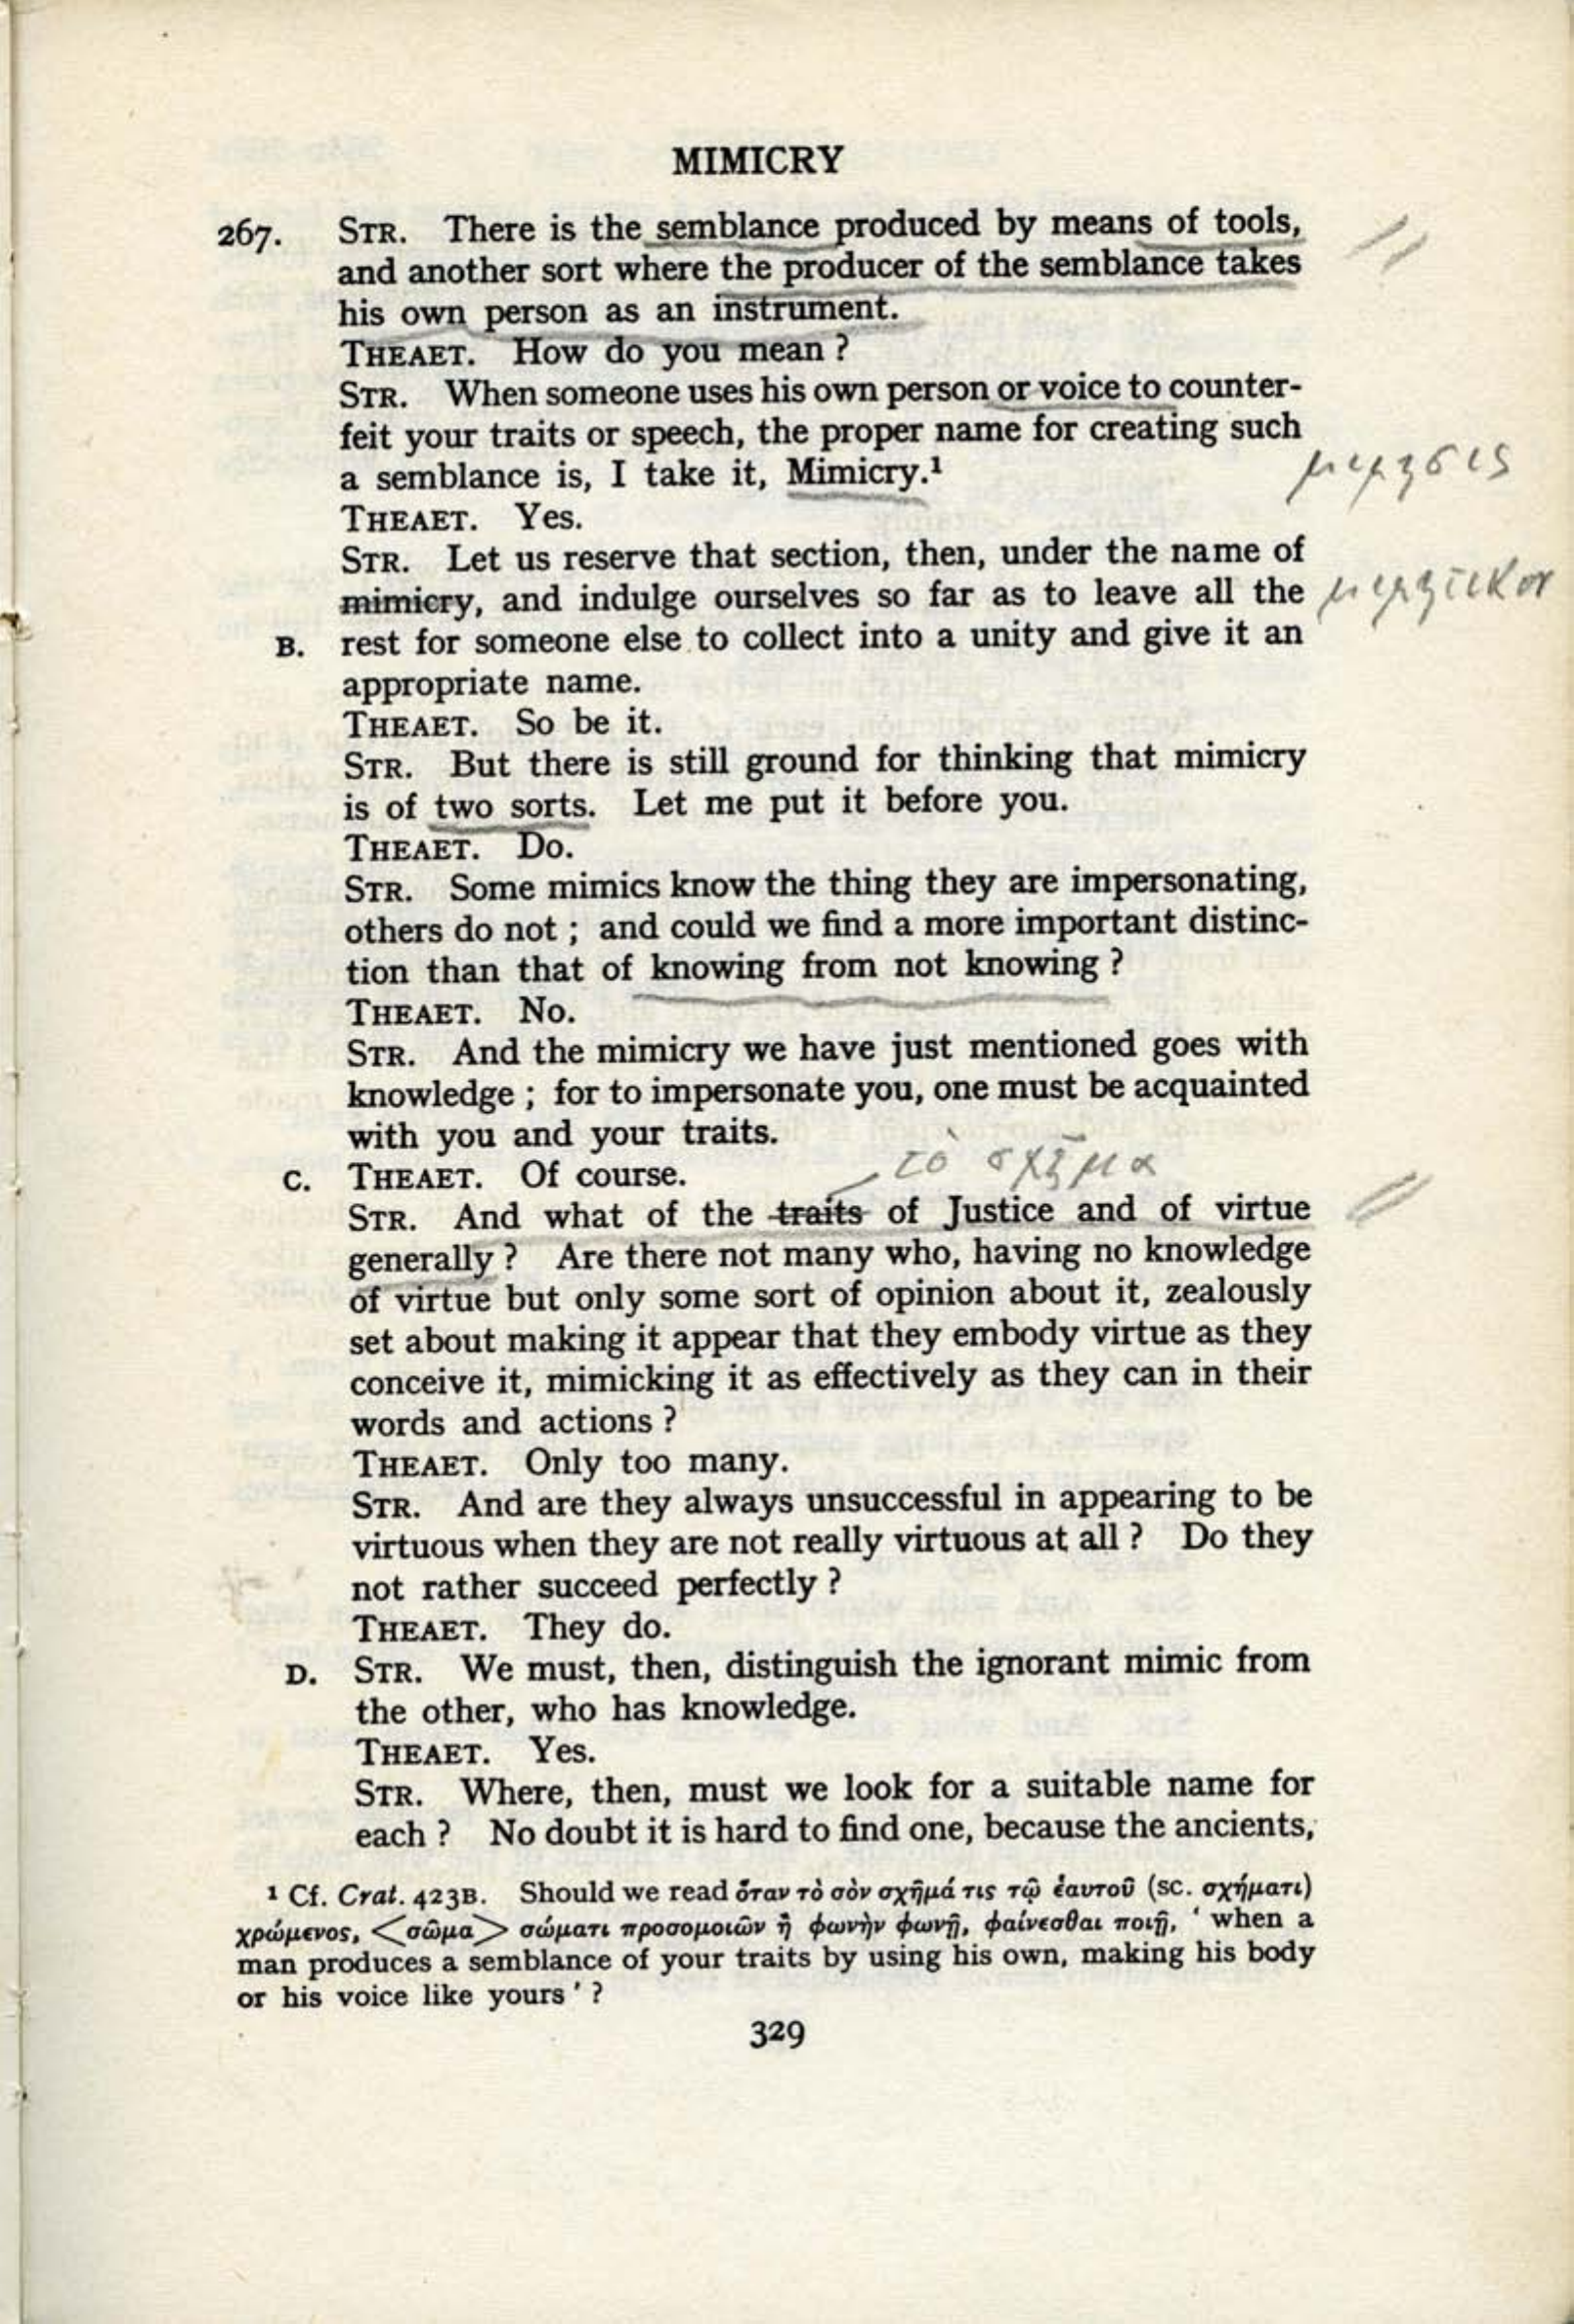 MIMICRY
267. STR. There is the semblance produced by means of tools,
and another sort where the producer of the semblance takes
his own person as an instrument.
THEAET. How do you mean ?
STR. When someone uses his own person or voice to counter-
feit your traits or speech, the proper name for creating such
a semblance is, I take it, Mimicry.¹
μιμησις
THEAET. Yes.
STR. Let us reserve that section, then, under the name of
mimicry, and indulge ourselves so far as to leave all the
B. rest for someone else to collect into a unity and give it an
appropriate name.
THEAET. So be it.
STR. But there is still ground for thinking that mimicry
is of two sorts. Let me put it before you.
THEAET. Do.
STR. Some mimics know the thing they are impersonating,
others do not ; and could we find a more important distinc-
tion than that of knowing from not knowing ?
THEAET. No.
STR. And the mimicry we have just mentioned goes with
knowledge ; for to impersonate you, one must be acquainted
with you and your traits.
τὸ σχῆμα
C. THEAET. Of course.
STR. And what of the traits of Justice and of virtue
generally ? Are there not many who, having no knowledge
of virtue but only some sort of opinion about it, zealously
set about making it appear that they embody virtue as they
conceive it, mimicking it as effectively as they can in their
words and actions ?
THEAET. Only too many.
STR. And are they always unsuccessful in appearing to be
virtuous when they are not really virtuous at all ? Do they
not rather succeed perfectly ?
THEAET. They do.
D. STR. We must, then, distinguish the ignorant mimic from
the other, who has knowledge.
THEAET. Yes.
STR. Where, then, must we look for a suitable name for
each ? No doubt it is hard to find one, because the ancients,
¹ Cf. Crat. 423B. Should we read ὅταν τὸ σὸν σχῆμά τις τῷ ἑαυτοῦ (sc. σχήματι)
χρώμενος, <σῶμα> σώματι προσομοιῶν ἢ φωνὴν φωνῇ, φαίνεσθαι ποιῇ, ‘ when a
man produces a semblance of your traits by using his own, making his body
or his voice like yours ’ ?
329